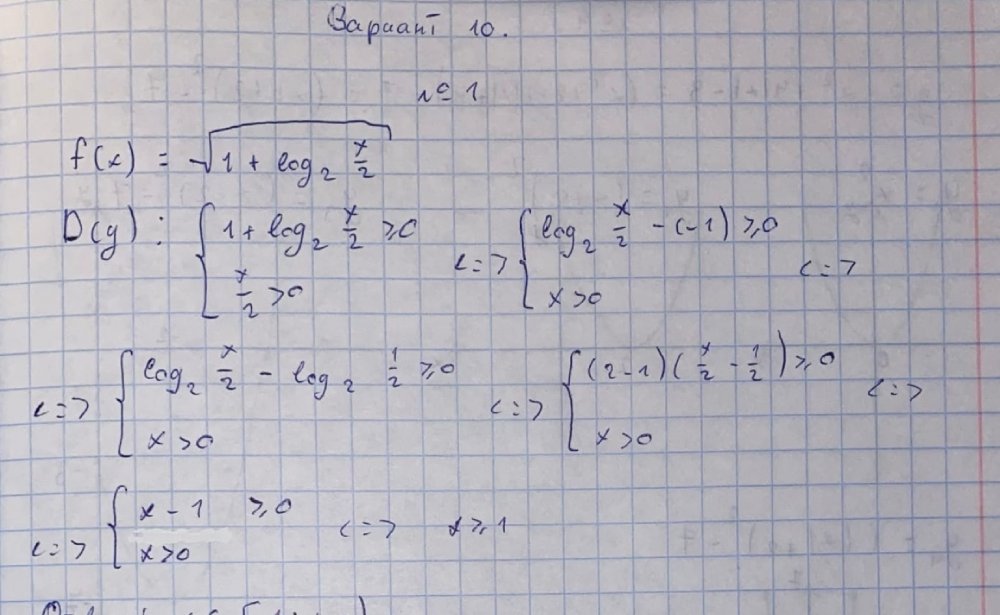 Вариант 10.
№ 1
f(x) = √(1 + log₂ x/2)
D(y) : { 1 + log₂ x/2 ≥ 0 ; x/2 > 0 <=> { log₂ x/2 - (-1) ≥ 0 ; x > 0 <=>
<=> { log₂ x/2 - log₂ 1/2 ≥ 0 ; x > 0 <=> { (2-1)(x/2 - 1/2) ≥ 0 ; x > 0 <=>
<=> { x - 1 ≥ 0 ; x > 0 <=> x ≥ 1